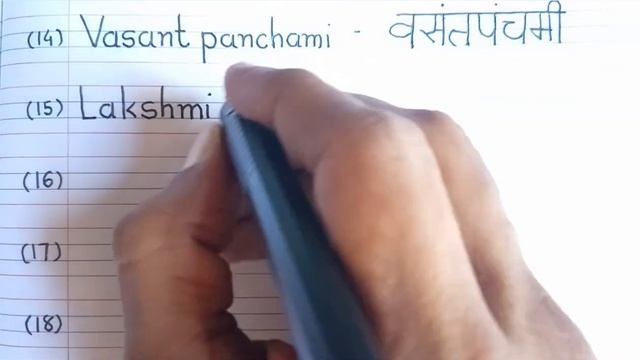 (14) Vasant panchami - वसंतपंचमी
(15) Lakshmi
(16)
(17)
(18)